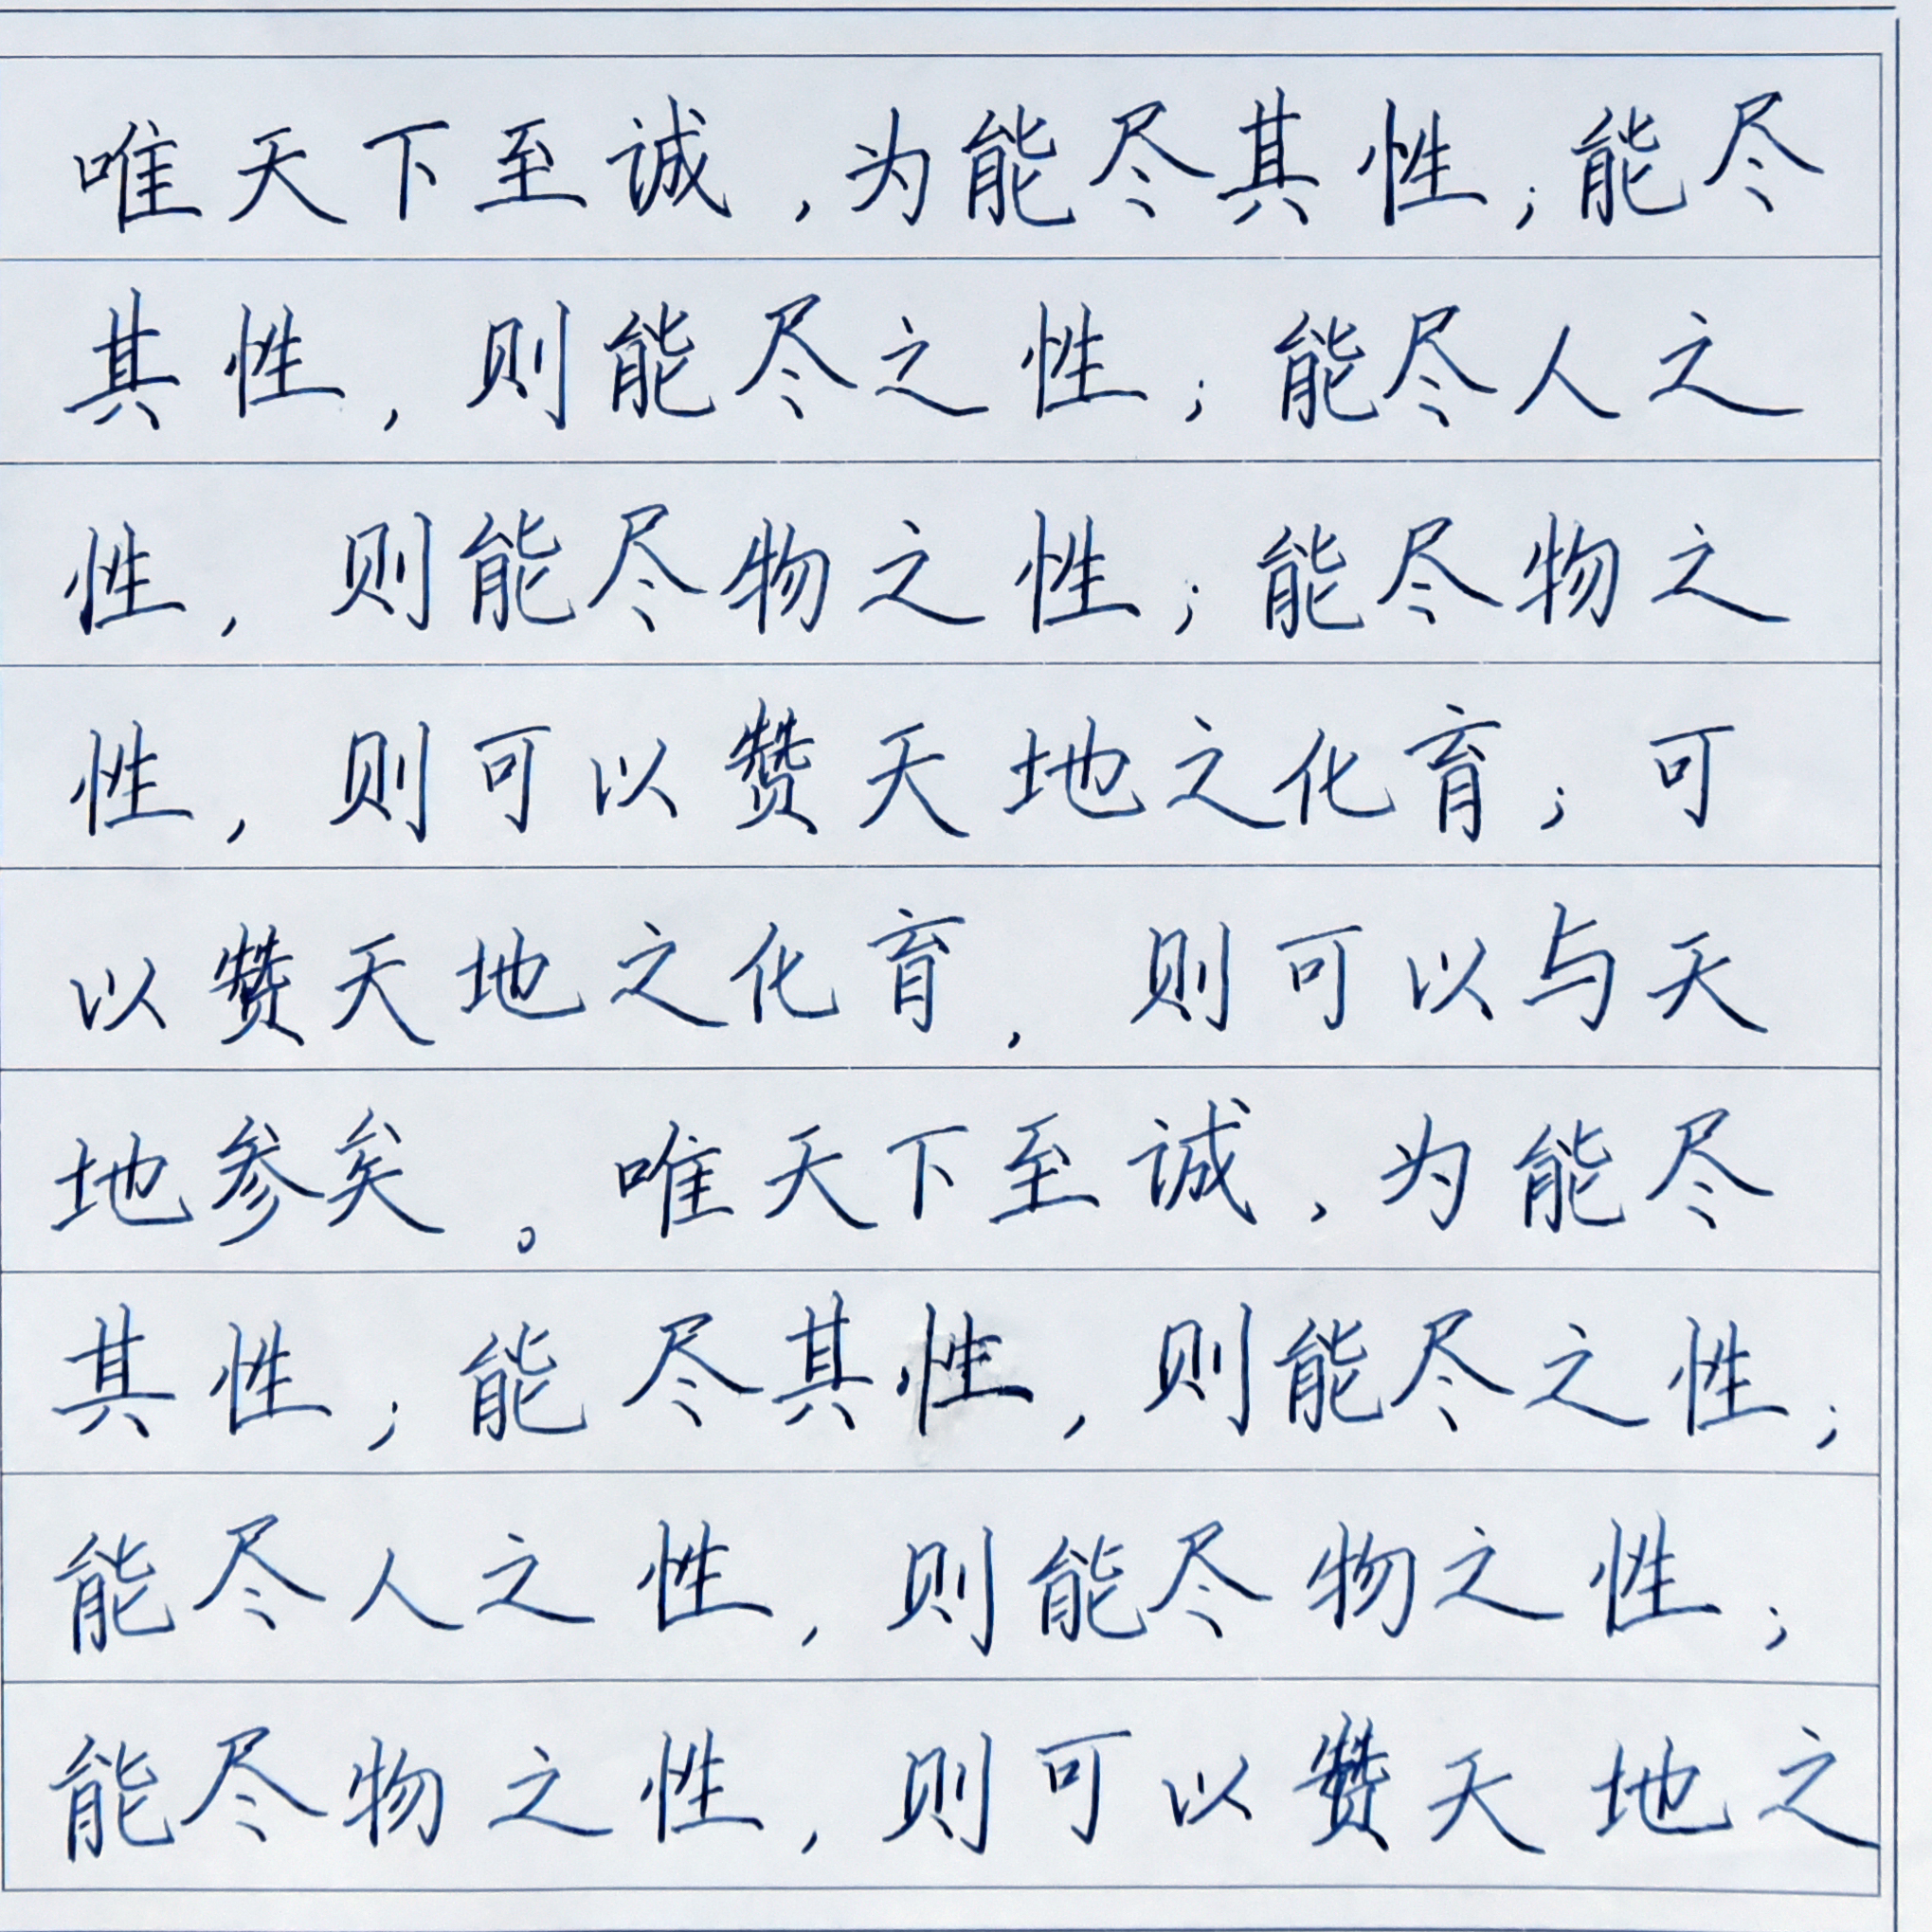 唯天下至诚,为能尽其性;能尽
其性,则能尽之性;能尽人之
性,则能尽物之性;能尽物之
性,则可以赞天地之化育;可
以赞天地之化育,则可以与天
地参矣。唯天下至诚,为能尽
其性;能尽其性,则能尽之性;
能尽人之性,则能尽物之性;
能尽物之性,则可以赞天地之